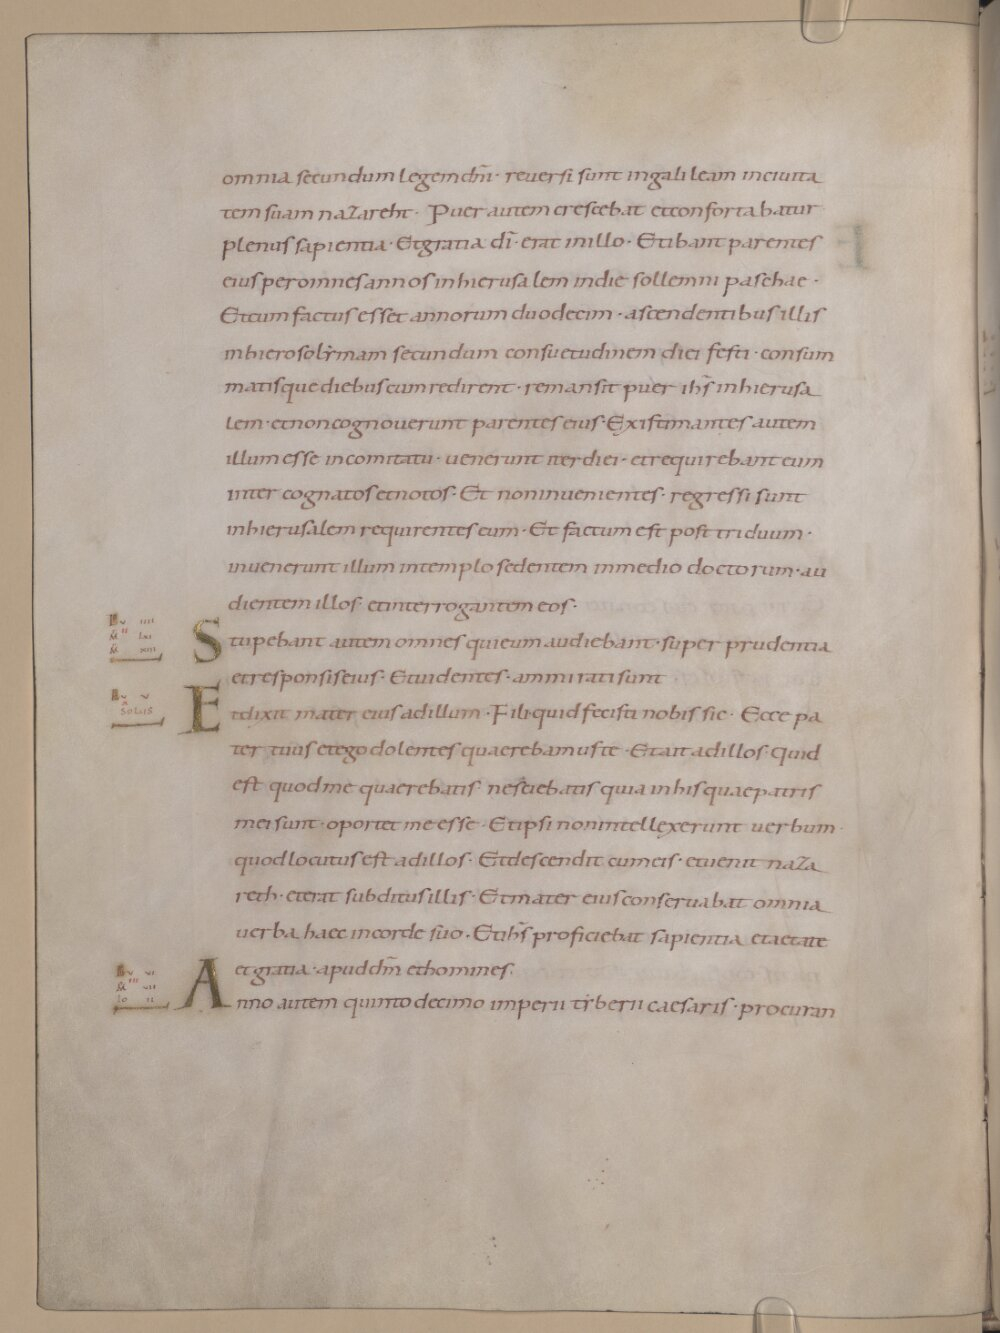 omnia secundum legem dm̄· reuersi sunt in galileam in ciuita
tem suam nazareht· Puer autem crescebat et confortabatur
plenus sapientia· Et gratia dī· erat in illo· Et ibant parentes
eius per omnes annos in hierusalem in die sollemni paschae·
Et cum factus esset annorum duodecim· ascendentibus illis
in hierosolẏmam secundum consuetudinem diei festi· consum
matisque diebus cum redirent· remansit puer ihs̄ in hierusa
lem· et non cognouerunt parentes eius· Existimantes autem
illum esse in comitatu· uenerunt iter diei· et requirebant eum
inter cognatos et notos· Et non inuenientes· regressi sunt
in hierusalem requirentes eum· Et factum est post triduum·
inuenerunt illum in templo sedentem in medio doctorum· au
dientem illos et interrogantem eos·
Lu IIII
Stupebant autem omnes qui eum audiebant· super prudentia
et responsis eius· Et uidentes· ammirati sunt
Lu V
SOLUS
Et dixit mater eius ad illum· Fili· quid fecisti nobis sic· Ecce pa
ter tuus et ego dolentes quaerebamus te· Et ait ad illos· quid
est quod me quaerebatis nesciebatis quia in his quae patris
mei sunt· oportet me esse· Et ipsi non intellexerunt uerbum·
quod locutus est ad illos· Et descendit cum eis· et uenit naza
reth· et erat subditus illis· Et mater eius conseruabat omnia
uerba haec in corde suo· Et ihs̄ proficiebat sapientia et aetate
et gratia· apud dm̄ et homines·
Lu VI
Io II
Anno autem quinto decimo imperii tẏberii caesaris· procuran